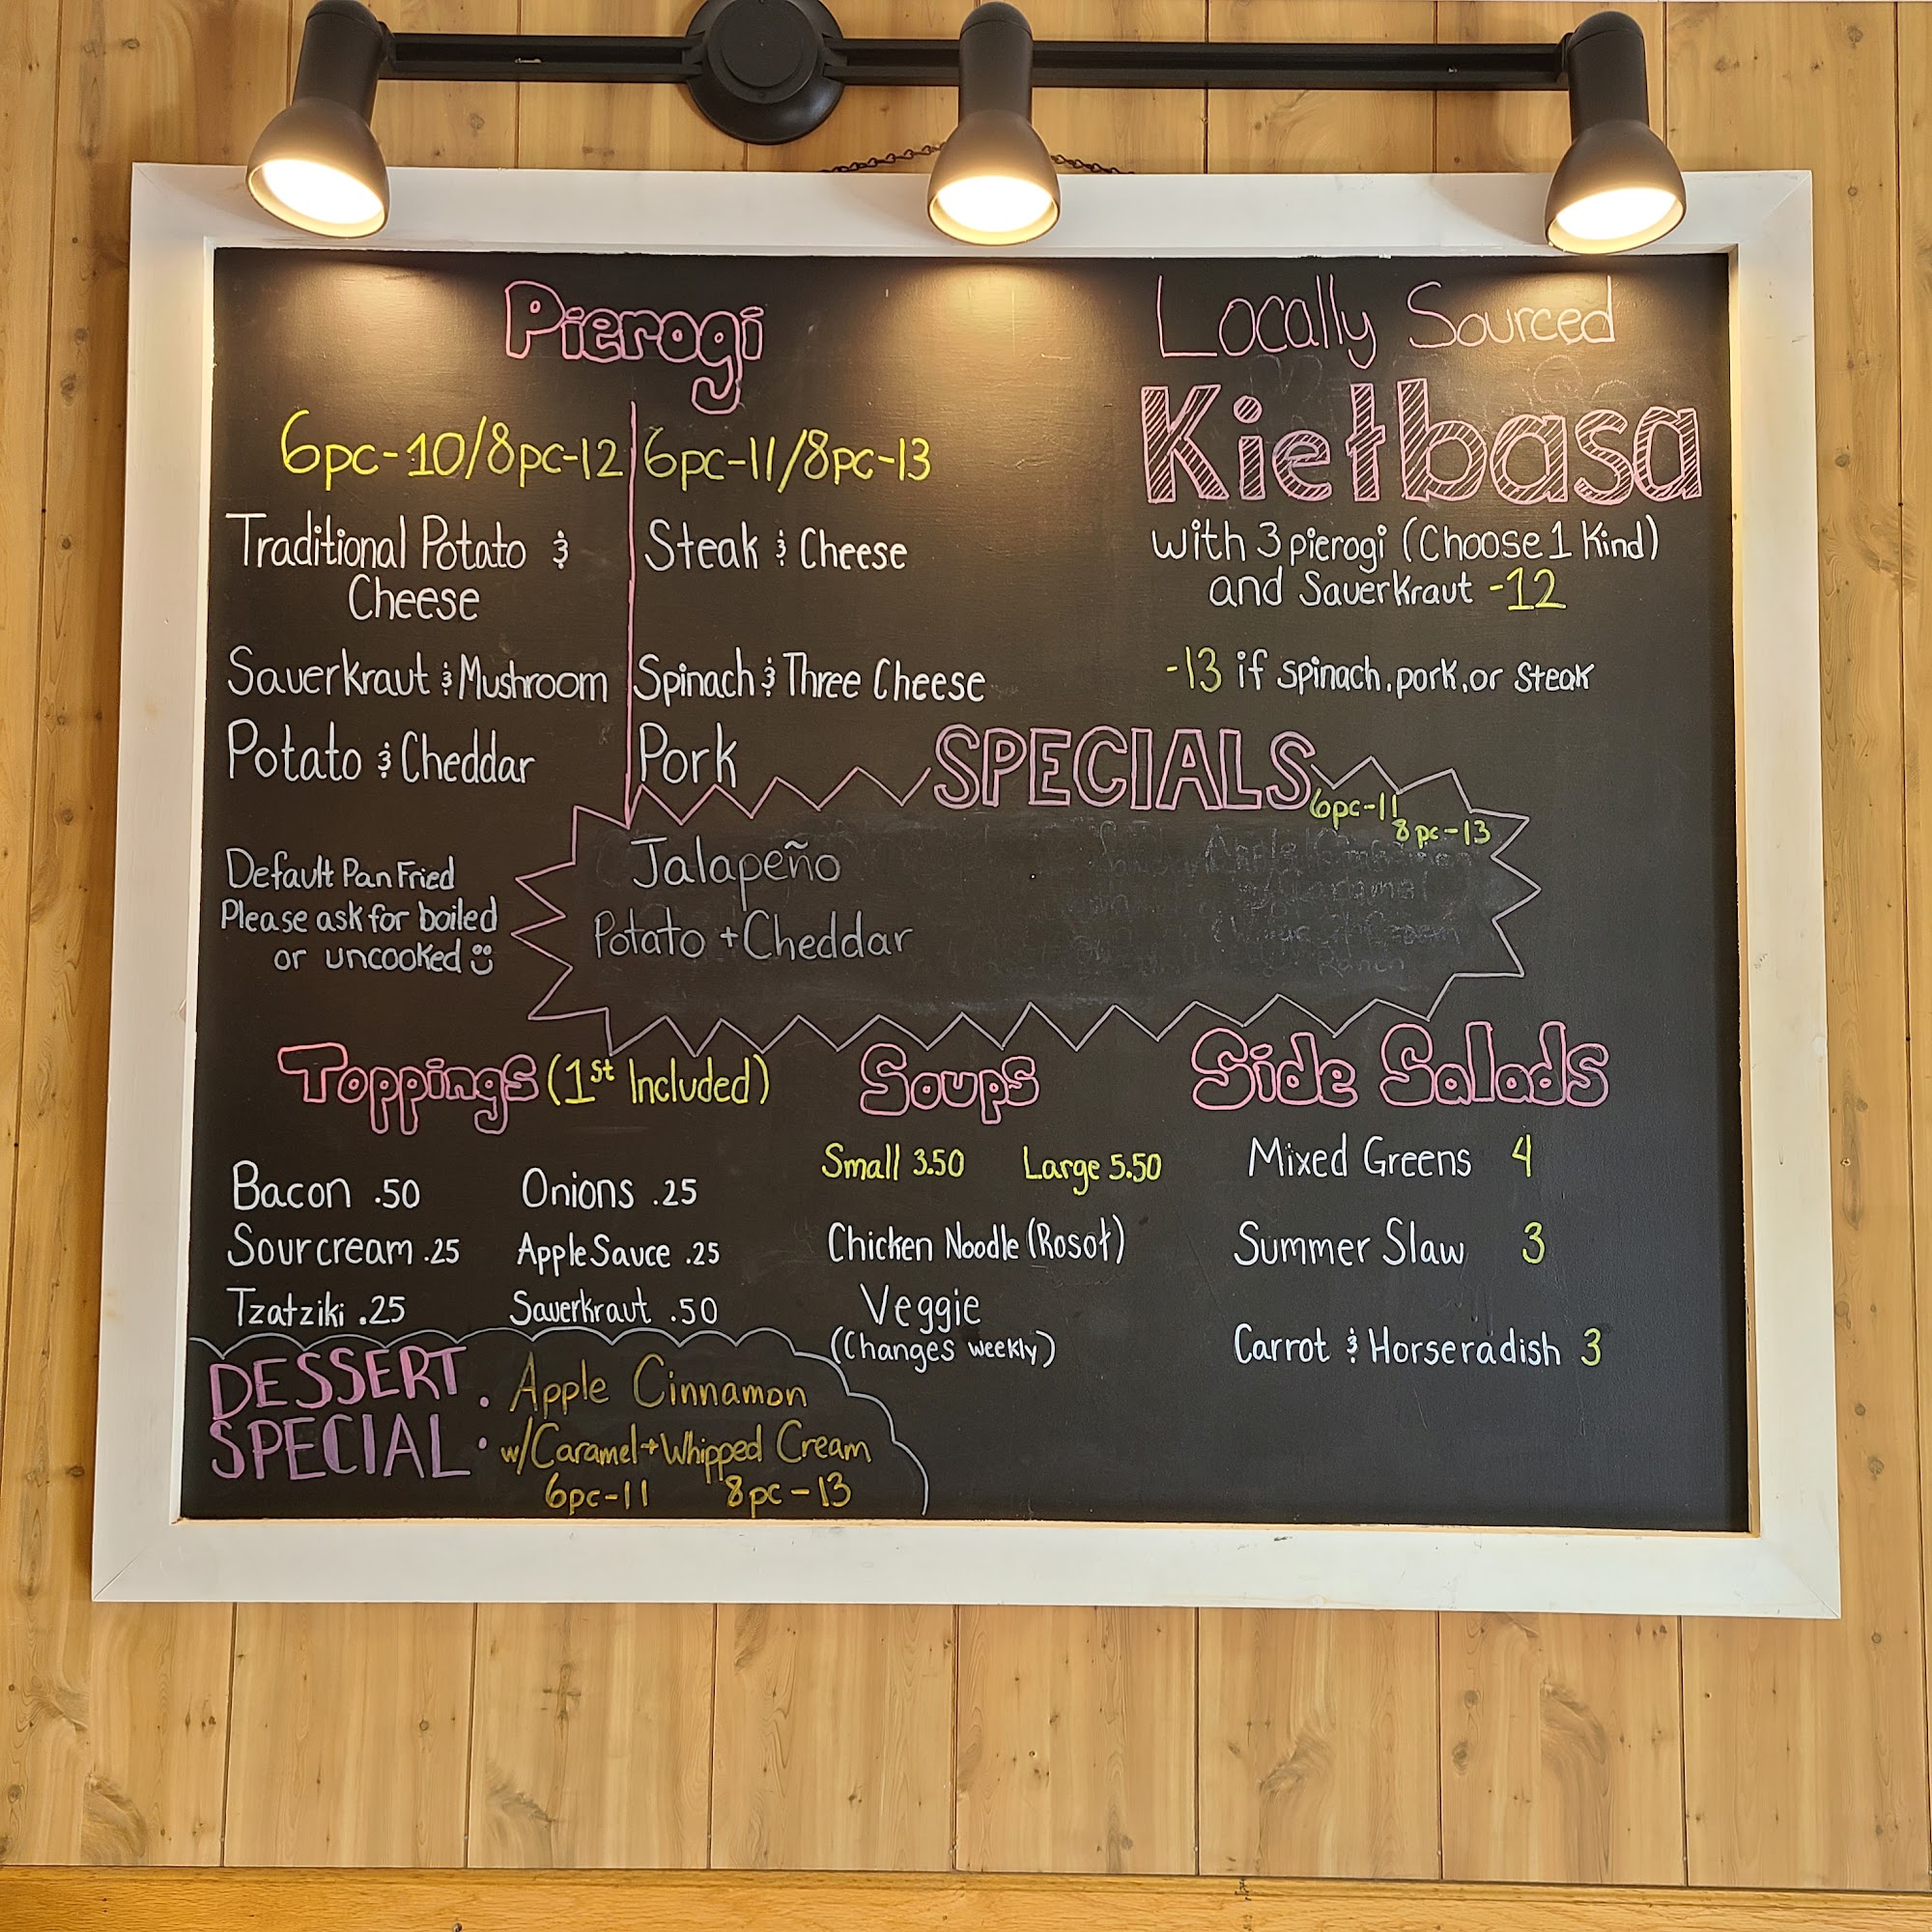 Pierogi
6pc-10/8pc-12
Traditional Potato &
Cheese
Sauerkraut & Mushroom
Potato & Cheddar
6pc-11/8pc-13
Steak & Cheese
Spinach & Three Cheese
Pork
Default Pan Fried
Please ask for boiled
or uncooked
Locally Sourced
Kiełbasa
with 3 pierogi (Choose 1 Kind)
and Sauerkraut -12
-13 if spinach, pork, or steak
SPECIALS
6pc-11
8pc-13
Jalapeño
Potato + Cheddar
Toppings (1st Included)
Bacon .50
Sour cream .25
Tzatziki .25
Onions .25
Apple Sauce .25
Sauerkraut .50
Soups
Small 3.50 Large 5.50
Chicken Noodle (Rosół)
Veggie
(Changes weekly)
Side Salads
Mixed Greens 4
Summer Slaw 3
Carrot & Horseradish 3
DESSERT
SPECIAL:
Apple Cinnamon
w/Caramel + Whipped Cream
6pc-11 8pc-13